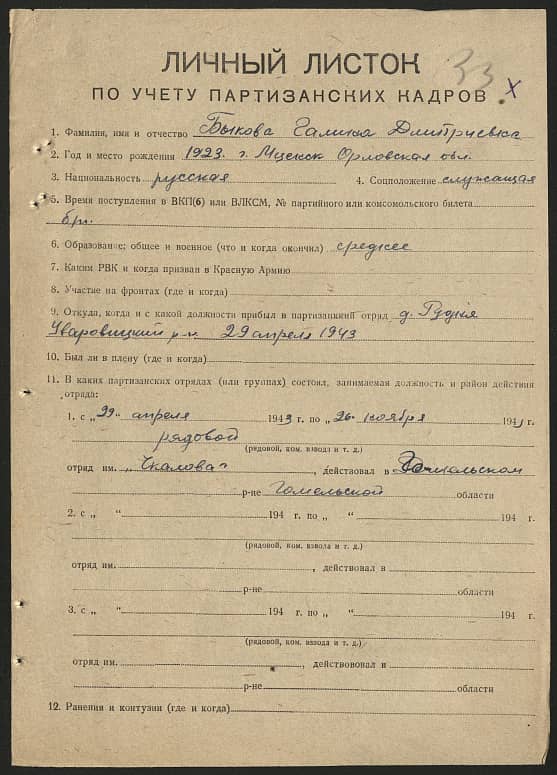 33
ЛИЧНЫЙ ЛИСТОК
ПО УЧЕТУ ПАРТИЗАНСКИХ КАДРОВ х
1. Фамилия, имя и отчество Быкова Галина Дмитриевна
2. Год и место рождения 1923 г. Мценск Орловская обл.
3. Национальность русская 4. Соцположение служащая
5. Время поступления в ВКП(б) или ВЛКСМ, № партийного или комсомольского билета
б/п.
6. Образование; общее и военное (что и когда окончил) среднее
7. Каким РВК и когда призван в Красную Армию
8. Участие на фронтах (где и когда)
9. Откуда, когда и с какой должности прибыл в партизанский отряд д. Рудня
Уваровицкий р-н 29 апреля 1943
10. Был ли в плену (где и когда)
11. В каких партизанских отрядах (или группах) состоял, занимаемая должность и район действия
отряда:
1. с „29“ апреля 1943 г. по „26“ ноября 1943 г.
рядовой
(рядовой, ком. взвода и т. д.)
отряд им. „Чкалова“, действовал в
р-не Гомельской области
2. с „ “ 194 г. по „ “ 194 г.
(рядовой, ком. взвола и т. д.)
отряд им. , действовал в
р-не области
3. с „ “ 194 г. по „ “ 194 г.
(рядовой, ком. взвода и т. д.)
отряд им. , действововал в
р-не области
12. Ранения и контузии (где и когда)